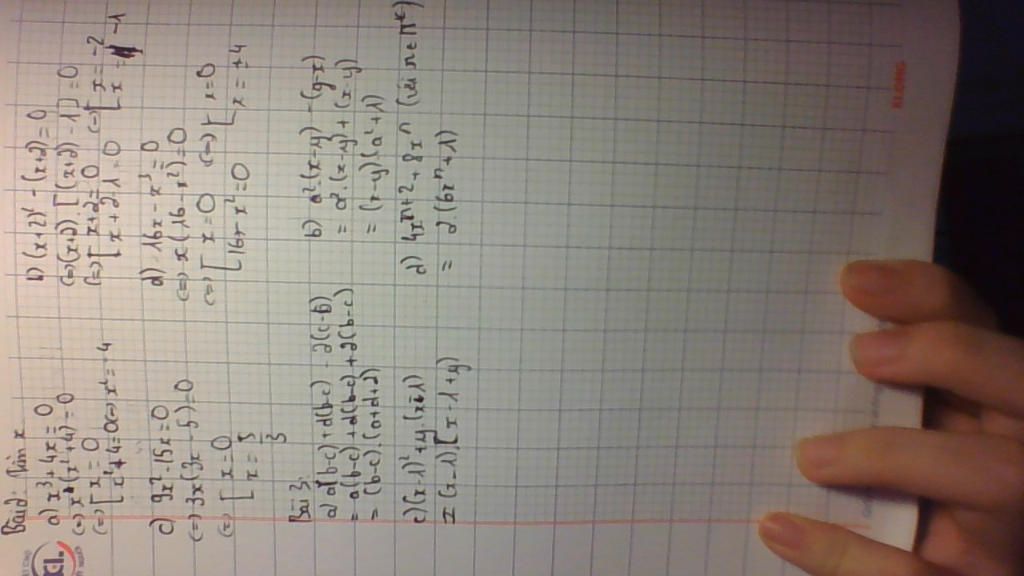 Bài 2: Tìm x
a) x³ + 4x = 0
(=) x(x² + 4) = 0
(=) [ x = 0
[ x² + 4 = 0 (=) x² = -4
b) (x+2)² - (x+2) = 0
(=) (x+2).[(x+2) - 1] = 0
(=) [ x+2 = 0 (=) [ x = -2
[ x+2-1 = 0 [ x = -1
c) 9x² - 15x = 0
(=) 3x(3x - 5) = 0
(=) [ x = 0
[ x = 5/3
d) 16x - x³ = 0
(=) x(16 - x²) = 0
(=) [ x = 0 (=) [ x = 0
[ 16 - x² = 0 [ x = ±4
Bài 3:
a) a(b-c) + d(b-c) - 2(c-b)
= a(b-c) + d(b-c) + 2(b-c)
= (b-c).(a+d+2)
b) a²(x-y) - (y-x)
= a².(x-y) + (x-y)
= (x-y)(a²+1)
c) (x-1)² + y(x-1)
= (x-1).[x-1+y)
d) 4xⁿ⁺² + 8xⁿ (với n ∈ N*)
= 2(6xⁿ + 1)
KLONG